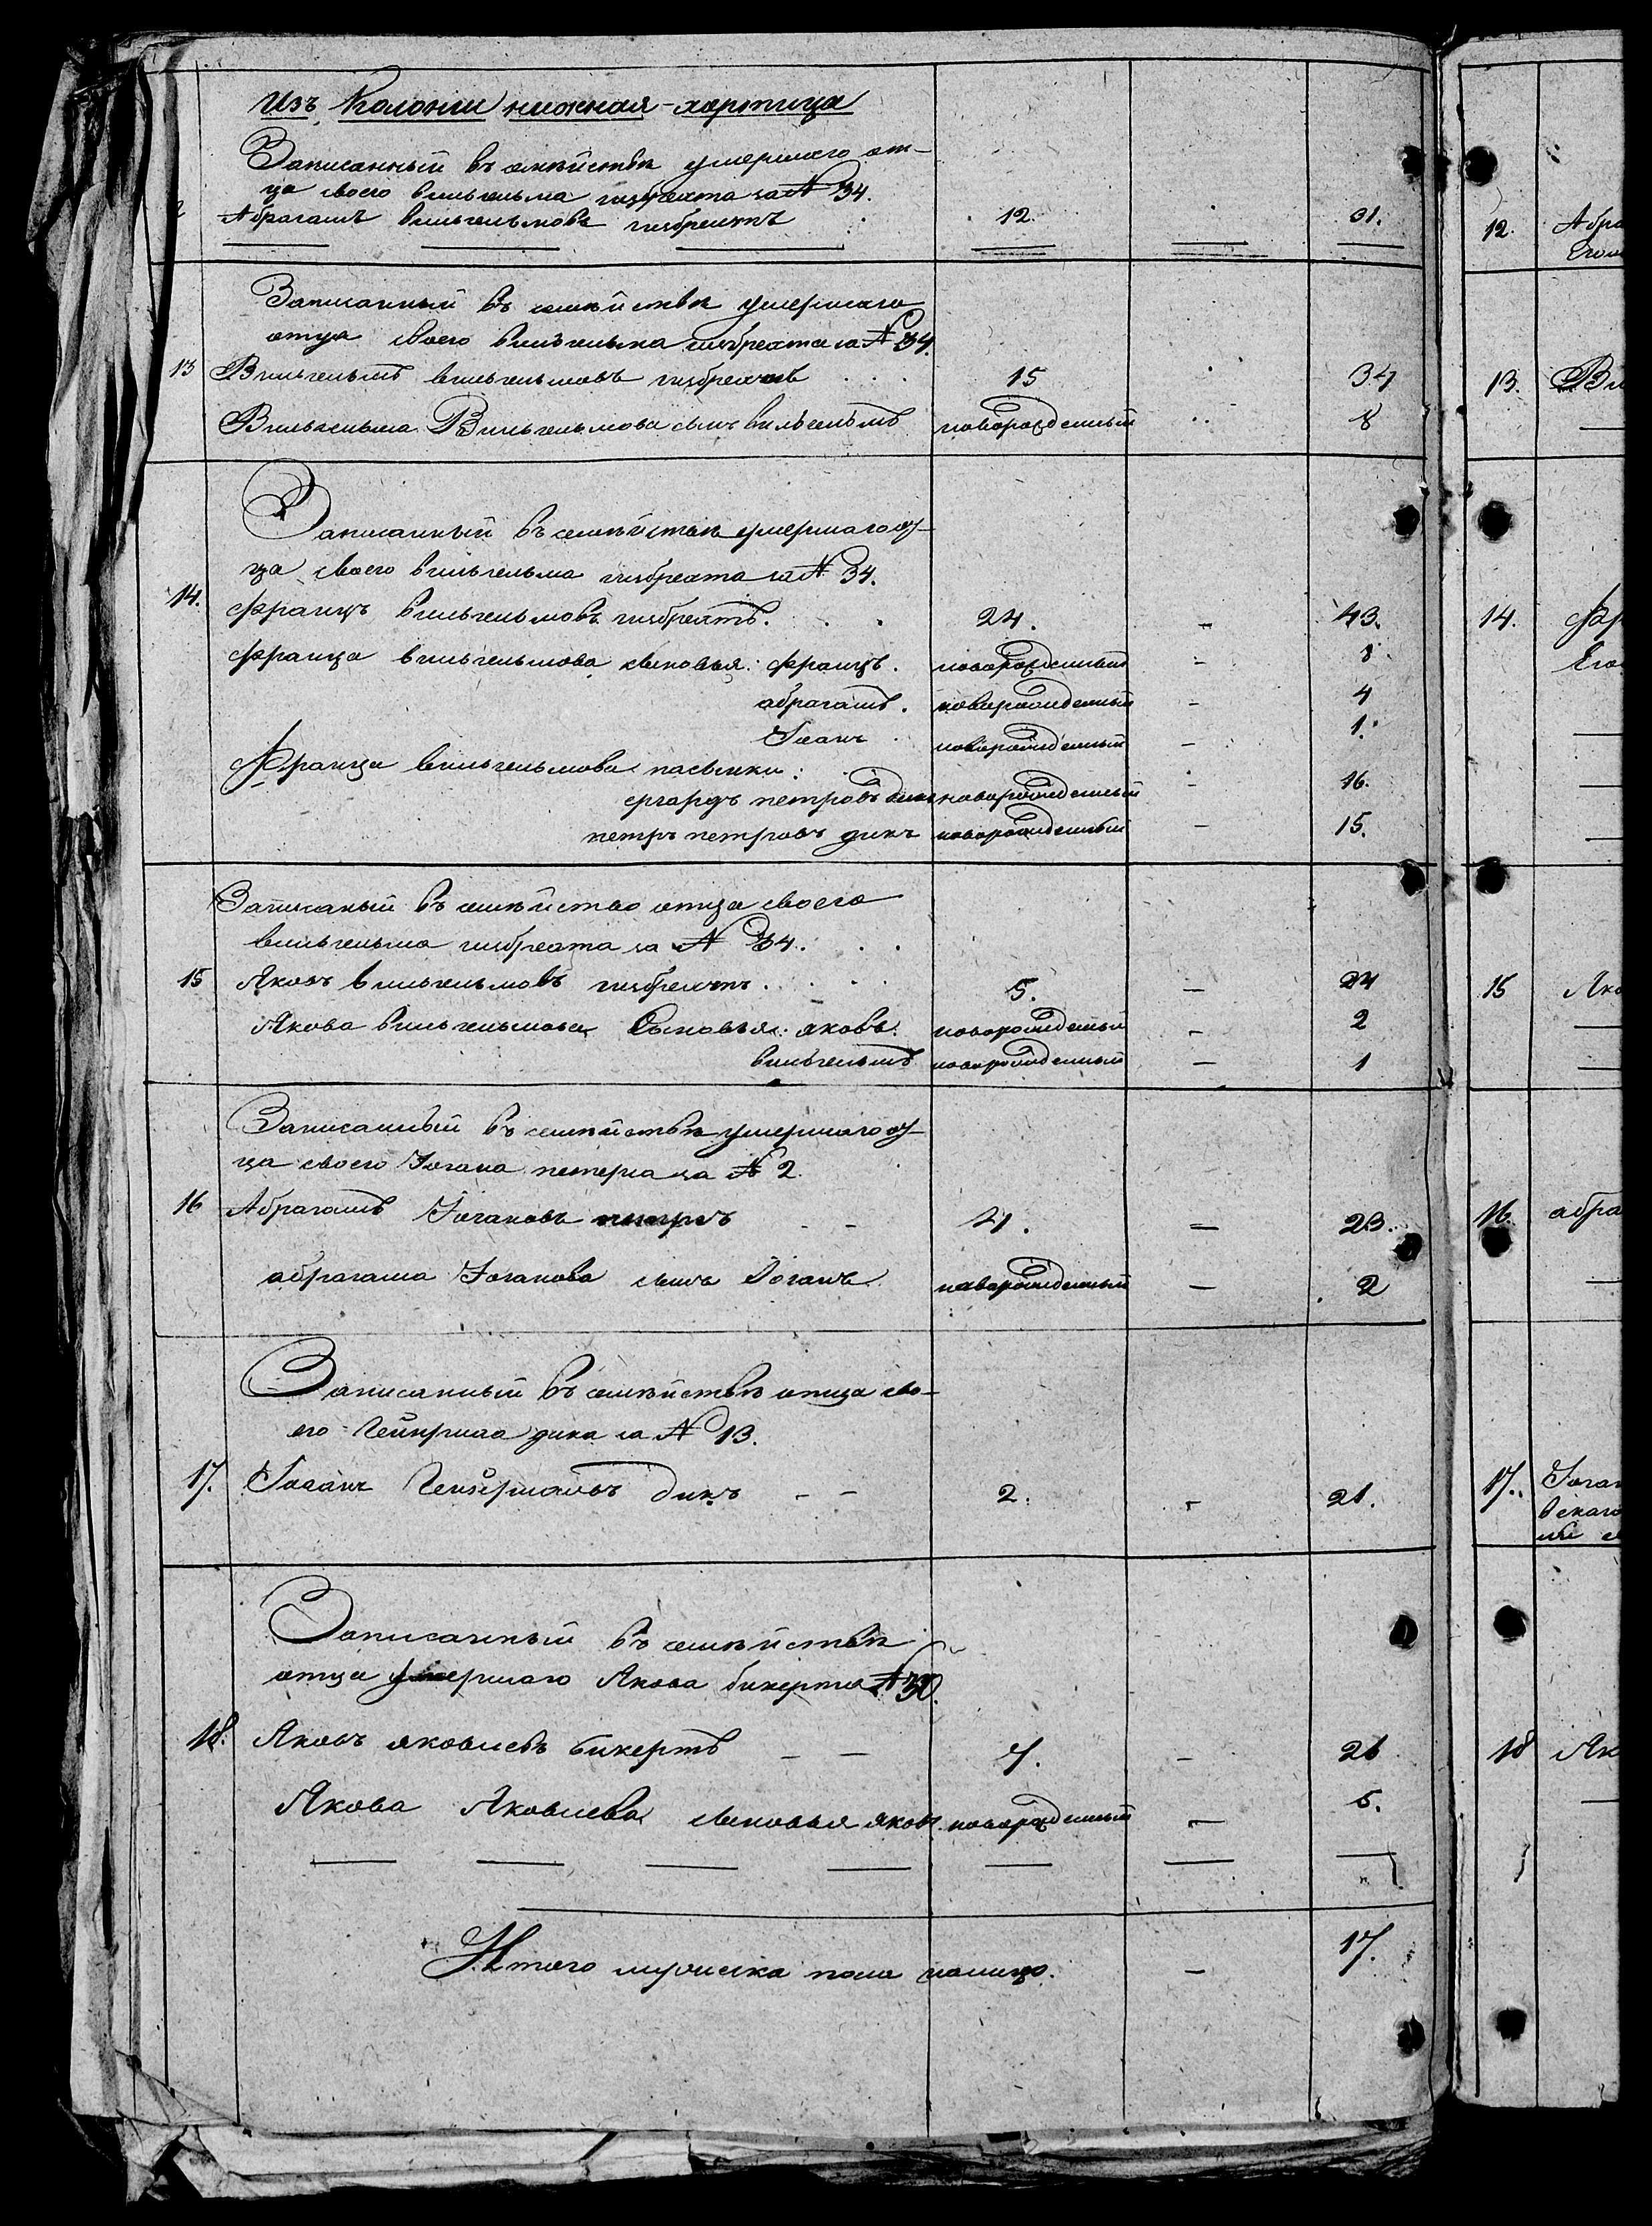 Изъ Колоніи нижняя-хортица
Записанный въ семействѣ умершаго от-
ца своего вильгельма гизбрехта за № 34.
Абрагамъ вильгельмовъ гизбрехтъ 12. 31.
Записанный въ семействѣ умершаго
отца своего вильгельма гизбрехта за № 34.
13 Вильгельмъ вильгельмовъ гизбрехтъ 15 34
Вильгельма Вильгельмова сынъ вильгельмъ новорожденный 8
Записанный въ семействѣ умершаго от-
ца своего вильгельма гизбрехта за № 34.
14. францъ вильгельмовъ гизбрехтъ. 24. - 43.
франца вильгельмова сыновья: францъ. новорожденный - 8
абрагамъ. новорожденный - 4
Іоанъ новорожденный - 1.
Франца вильгельмова пасынки:
ергардъ петровъ дикъ новорожденный - 16.
петръ петровъ дикъ новорожденный - 15.
Записаный въ семейство отца своего
вильгельма гизбрехта за № 34.
15 Яковъ вильгельмовъ гизбрехтъ. 5. - 24
Якова вильгельмова Сыновья: яковъ. новорожденный - 2
вильгельмъ новорожденный - 1
Записанный въ семействѣ умершаго от-
ца своего Іогана петерса за № 2.
16 Абрагамъ Іогановъ - - 4. - 23.
абрагама Іоганова сынъ Іоганъ новорожденный - 2
Записанный въ семействѣ отца сво-
его Гейнриха дика за № 13.
17. Іоганъ дикъ - - 2. - 21.
Записанный въ семействѣ
отца умершаго Якова бикерта № 30.
18. Яковъ яковлевъ бикертъ - - 7. - 26
Якова Яковлева сыновья яковъ. новорожденный - 5.
Итого мужеска пола налицо. - 17.
12. Абра
Егоу
13. Ви
14. Фр
Его
15 Яко
16. абра
17. Іоган
18 Як